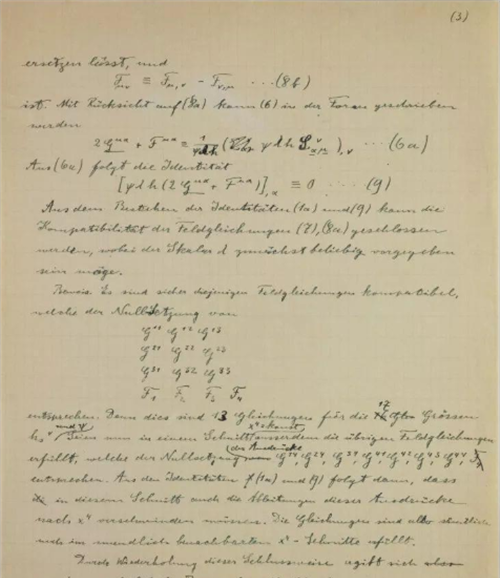 (3)
ersetzen lässt, und
F_μν ≡ F_μ,ν − F_ν,μ ... (8b)
ist. Mit Rücksicht auf (8a) kann (6) in der Form geschrieben
werden
2 G^μα + F^μα ≡ (ψ d h S^ν_μα),ν ... (6a)
Aus (6a) folgt die Identität
[ψ d h (2 G^μα + F^μα)],α ≡ 0 ... (9)
Aus dem Bestehen der Identitäten (1a) und (9) kann die
Kompatibilität der Feldgleichungen (7), (8a) geschlossen
werden, wobei der Skalar d zunächst beliebig vorgegeben
sein möge.
Beweis. Es sind sicher diejenigen Feldgleichungen kompatibel,
welche der Nullsetzung von
G^11 G^12 G^13
G^21 G^22 G^23
G^31 G^32 G^33
F_1 F_2 F_3 F_4
entsprechen. Denn dies sind 13 Gleichungen für die 17 Grössen
h_s^ν und ψ. Seien nun in einem Schnitt x^4 = konst. ausserdem die übrigen Feldgleichungen
erfüllt, welche der Nullsetzung der Ausdrücke G^14, G^24, G^34, G^41, G^42, G^43, G^44,
entsprechen. Aus den Identitäten (1a) und (9) folgt dann, dass
in diesem Schnitt auch die Ableitungen dieser Ausdrücke
nach x^4 verschwinden müssen. Die Gleichungen sind also
auch im unendlich benachbarten x^4-Schnitte erfüllt.
Durch Wiederholung dieser Schlussweise ergibt sich